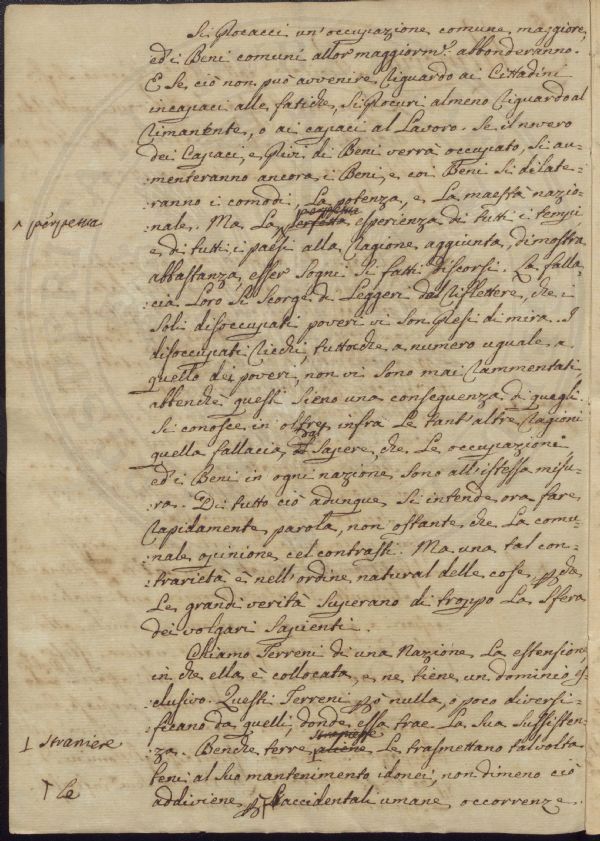 Si procacci un'occupazione comune maggiore,
ed i Beni comuni allor maggiorm.e abbonderanno.
E se ciò non può avvenire riguardo ai Cittadini
incapaci alle fatiche, si procuri almeno riguardo al
rimanente, o ai capaci al Lavoro. Se il nuero
dei Capaci, e privi di Beni verrà occupato, si au-
:menteranno ancora i Beni, e coi Beni si dilate-
:ranno i comodi, La potenza, e La maestà nazio-
perpetua
^ perpetua
:nale. Ma La perfetta esperienza di tutti i tempi
e di tutti i paesi alla ragione aggiunta, dimostra
abbastanza, esser sogni sì fatti discorsi. La falla-
cia Loro si scorge di Leggeri dal riflettere, che i
soli disoccupati poveri vi son presi di mira. I
disoccupati ricchi, tuttoche a numero uguale a
quello dei poveri, non vi sono mai rammentati,
abbenche questi sieno una conseguenza di quegli.
Si conosce in oltre, infra Le tant'altre ragioni
dal
quella fallacia, sapere, che Le occupazioni
ed i Beni in ogni nazione sono all'istessa misu-
:ra. Di tutto ciò adunque si intende ora fare
rapidamente parola, non ostante che La comu-
:nale opinione cel contrasti. Ma una tal con-
:trarietà è nell'ordine natural delle cose, pchè
Le grandi verità superano di troppo La sfera
dei volgari sapienti.
Chiamo Terreni di una Nazione La estensione,
in che ella è collocata, e ne tiene un dominio es-
clusivo. Questi Terreni pò nulla, o poco diversi-
:ficano da quelli, donde essa trae La sua sussisten-
straniere
⊥ straniere
:za. Benche terre aliene Le trasmettano talvolta
beni al suo mantenimento idonei, non dimeno ciò
Γ le
addiviene p accidentali umane occorrenze.